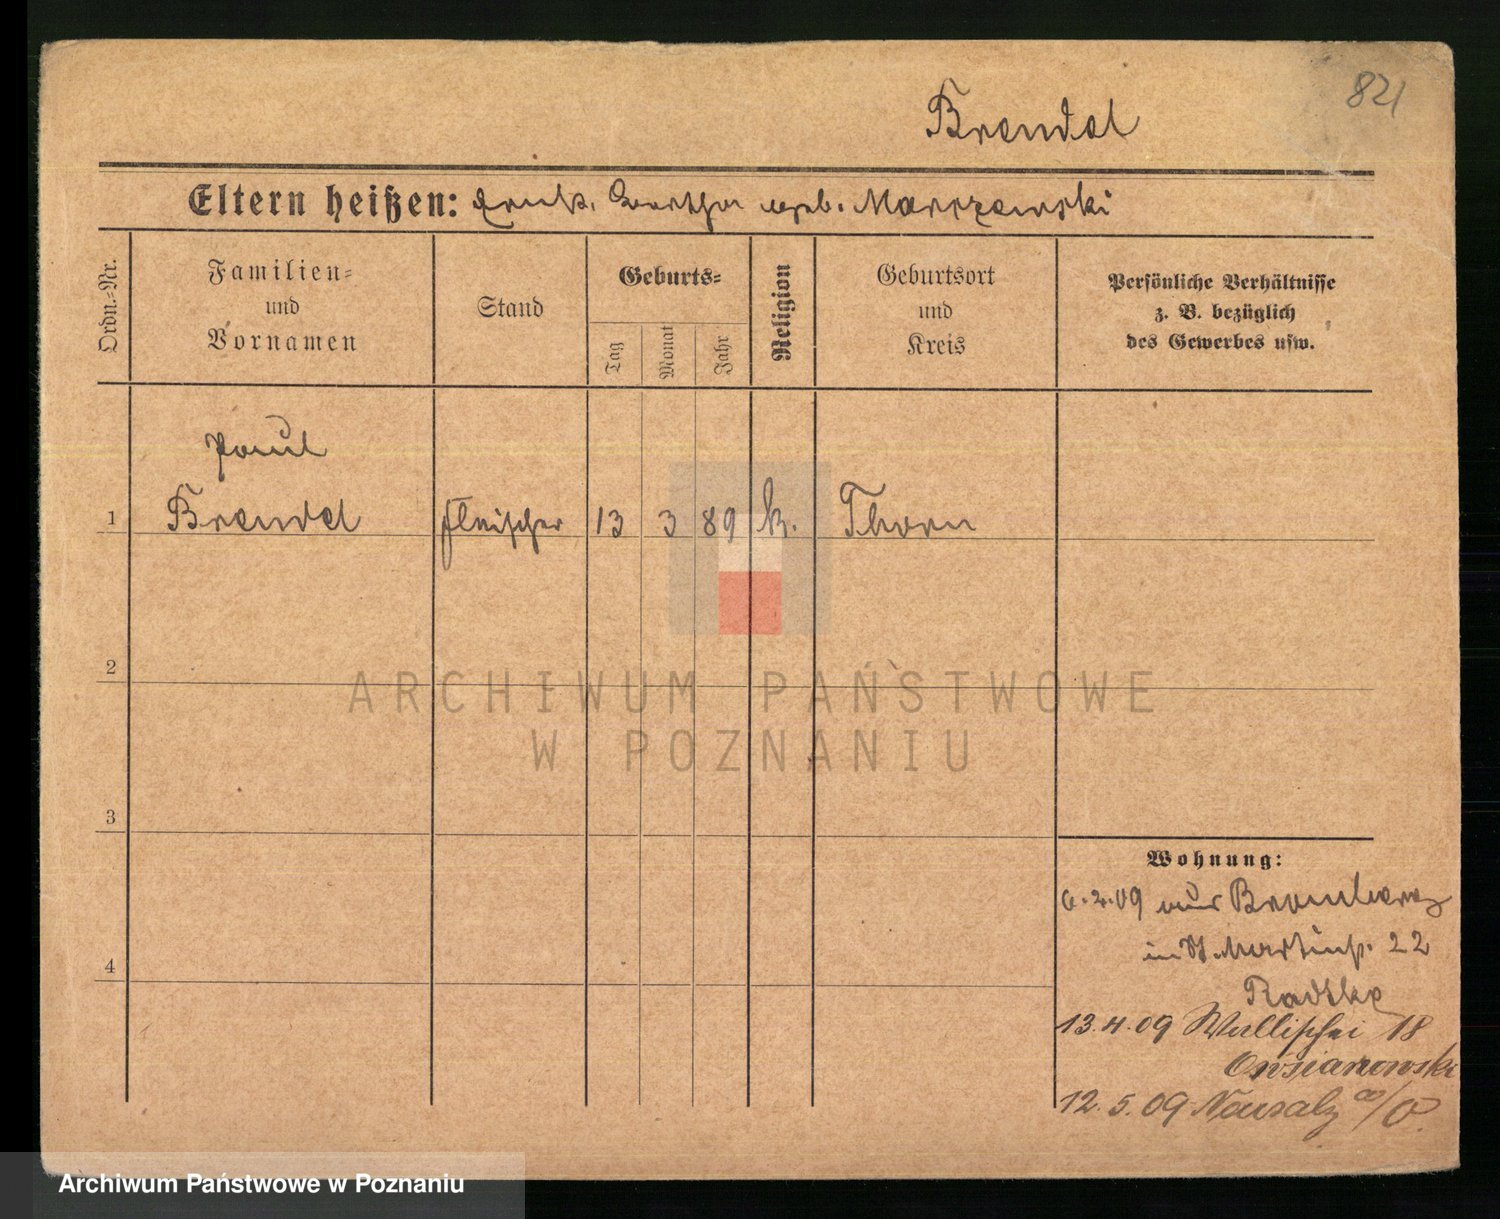 821
Brendel
Eltern heißen: Frank. Bertha geb. Marszewski
Ordn.-Nr.
Familien-
und
Vornamen
Stand
Geburts-
Tag
Monat
Jahr
Religion
Geburtsort
und
Kreis
Persönliche Verhältnisse
z. B. bezüglich
des Gewerbes usw.
Paul
1 Brendel Fleischer 13 3 89 k. Thorn
2
3
4
Wohnung:
6.2.09 aus Bromberg
in St. Martinstr. 22
Radtke
13.4.09 Wallischei 18
Owsianowski
12.5.09 Neusalz a/O.
ARCHIWUM PAŃSTWOWE
W POZNANIU
Archiwum Państwowe w Poznaniu